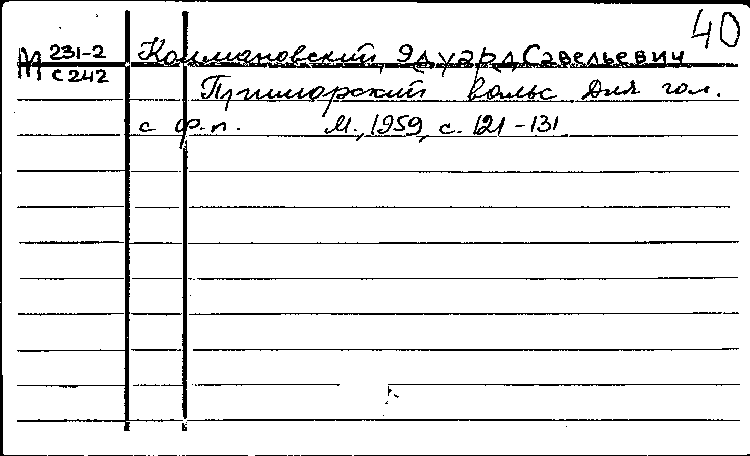 40
М 231-2 Колмановский, Эдуард Савельевич
С 242
Приморский вальс Для гол.
с ф.п. М., 1959, с. 121-131